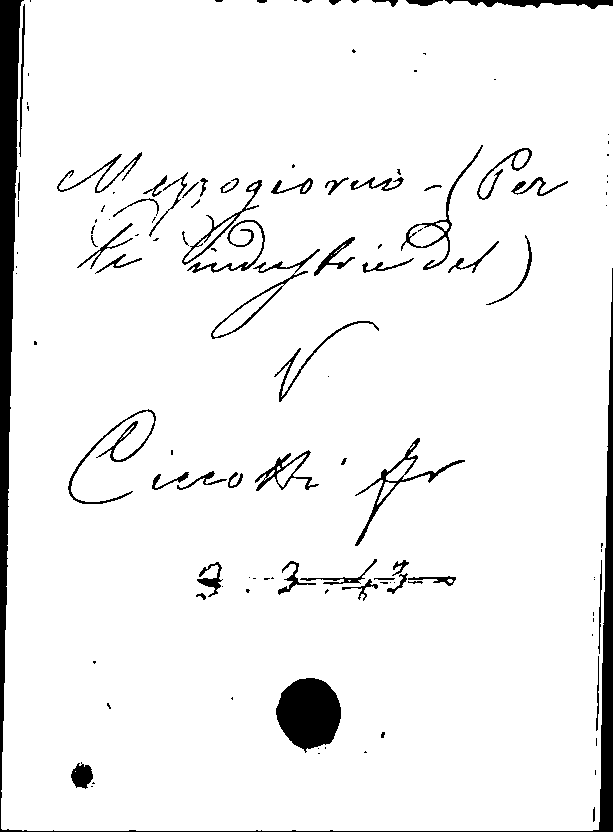 Mezzogiorno - (Per
le industrie del)
V
Ciccotti Fr
9. 3. 43